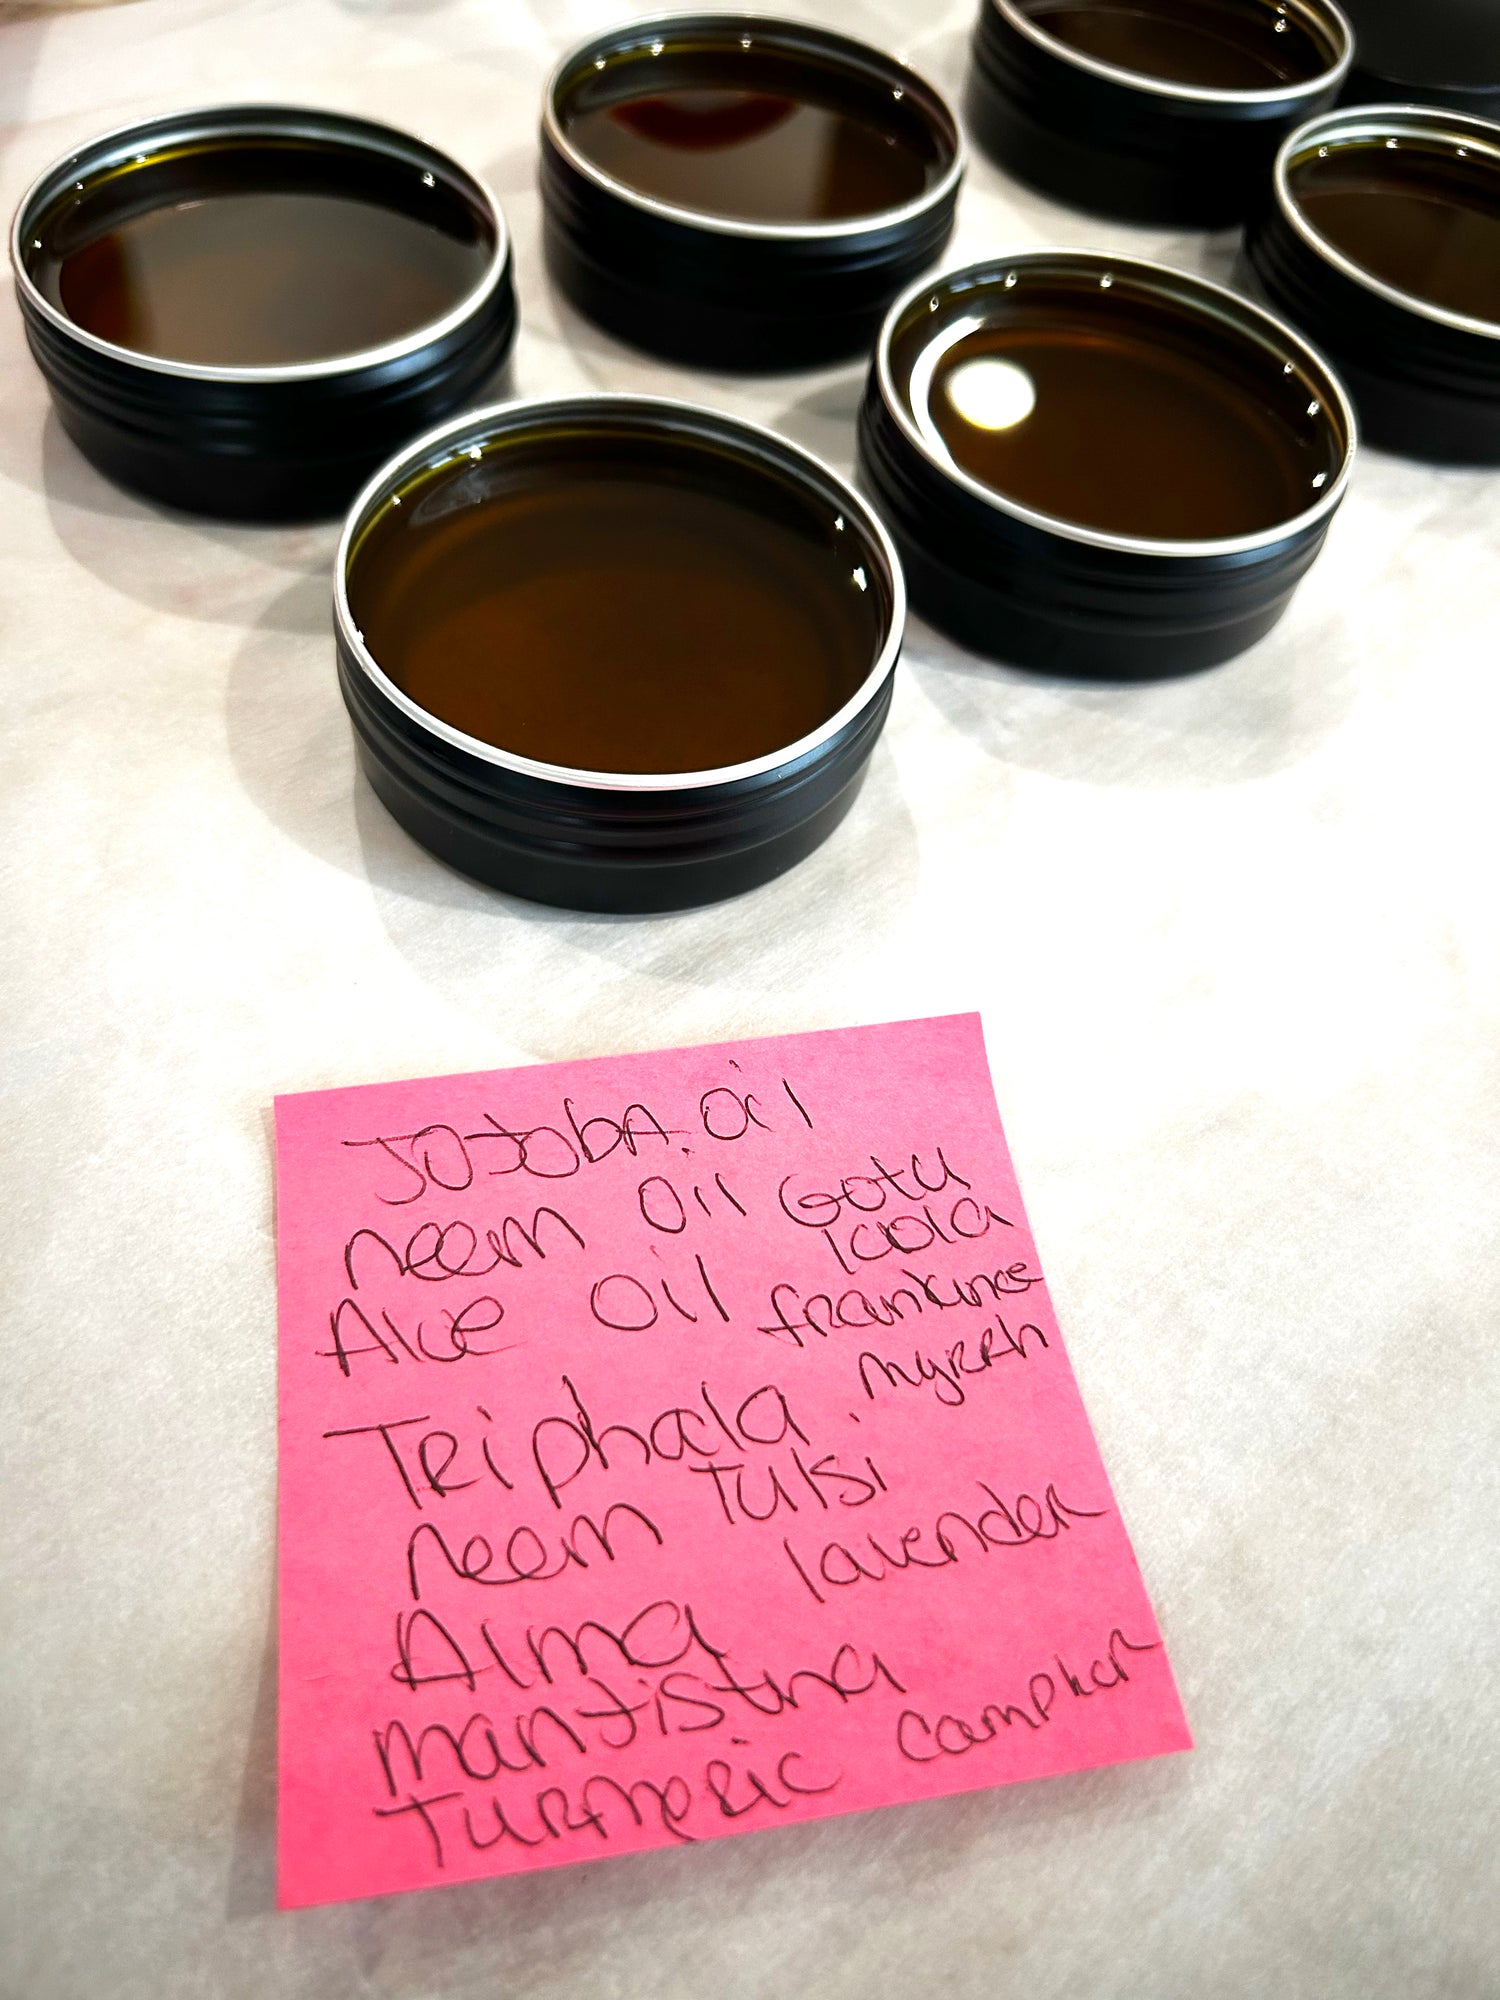 Jojoba Oil
neem Oil Gotu
Kola
Aloe Oil frankince
myrrh
Triphala
neem Tulsi
lavender
Alma
manjistha
Turmeric Camphor